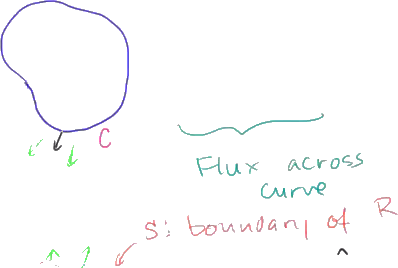 C
Flux across
curve
S: boundary of R